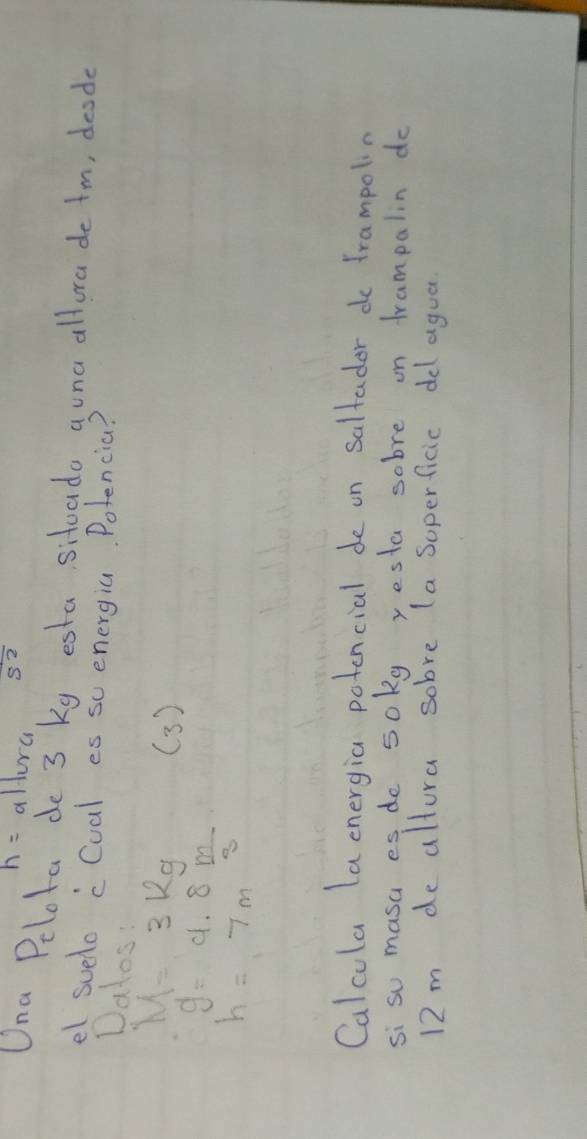 h = altura
s²
Una Pelota de 3 Kg esta situado a una altura de 7m, desde
el suelo ¿ Cual es su energia Potencia?
Datos:
M = 3 Kg (3)
g = 9.8 m
s
h = 7 m
Calcula la energia potencial de un saltador de trampolin
si su masa es de 50 kg y esta sobre un trampalin de
12 m de altura sobre la superficie del agua.